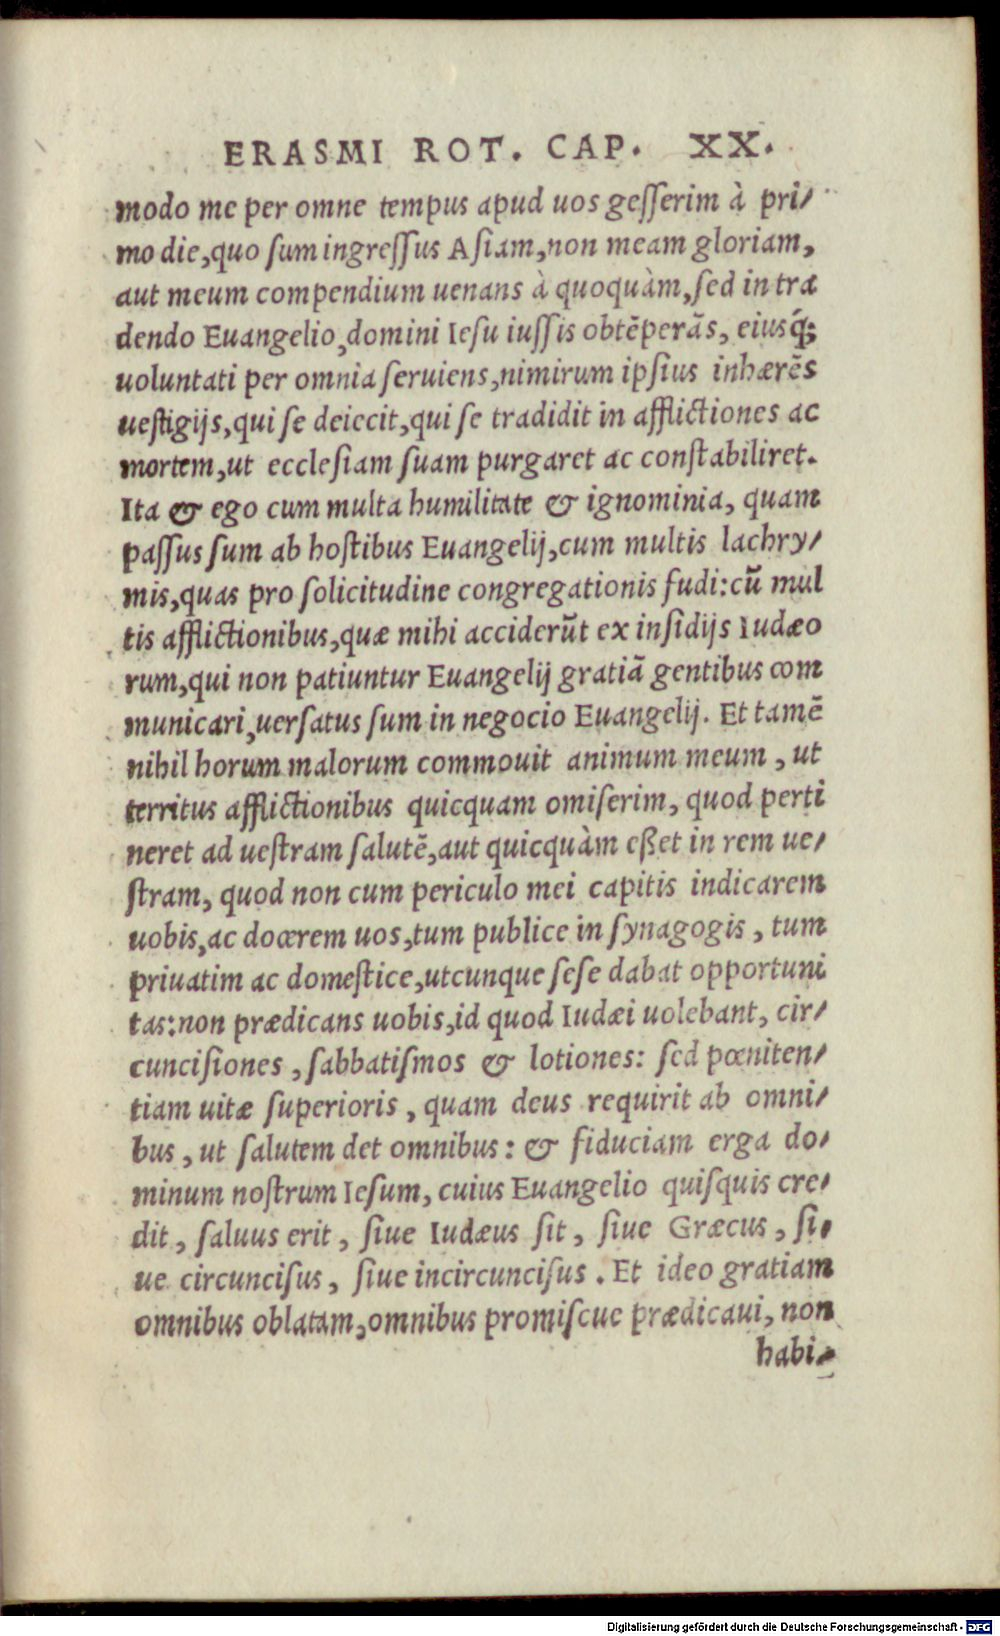 ERASMI ROT. CAP. XX.
modo me per omne tempus apud uos geſſerim à pri/
mo die,quo ſum ingreſſus Aſiam,non meam gloriam,
aut meum compendium uenans à quoquàm,ſed in tra
dendo Euangelio,domini Ieſu iuſſis obtẽperãs, eiusq́;
uoluntati per omnia ſeruiens,nimirum ipſius inhærẽs
ueſtigijs,qui ſe deiecit,qui ſe tradidit in afflictiones ac
mortem,ut eccleſiam ſuam purgaret ac conſtabiliret.
Ita & ego cum multa humilitate & ignominia, quam
paſſus ſum ab hoſtibus Euangelij,cum multis lachry/
mis,quas pro ſolicitudine congregationis fudi:cũ mul
tis afflictionibus,quæ mihi acciderũt ex inſidijs Iudæo
rum,qui non patiuntur Euangelij gratiã gentibus com
municari,uerſatus ſum in negocio Euangelij. Et tamẽ
nihil horum malorum commouit animum meum , ut
territus afflictionibus quicquam omiſerim, quod perti
neret ad ueſtram ſalutẽ,aut quicquàm eßet in rem ue/
ſtram, quod non cum periculo mei capitis indicarem
uobis,ac docerem uos,tum publice in ſynagogis , tum
priuatim ac domeſtice,utcunque ſeſe dabat opportuni
tas:non prædicans uobis,id quod Iudæi uolebant, cir/
cunciſiones , ſabbatiſmos & lotiones: ſed pœniten/
tiam uitæ ſuperioris , quam deus requirit ab omni/
bus , ut ſalutem det omnibus : & fiduciam erga do/
minum noſtrum Ieſum, cuius Euangelio quiſquis cre/
dit , ſaluus erit , ſiue Iudæus ſit , ſiue Græcus , ſi/
ue circunciſus , ſiue incircunciſus . Et ideo gratiam
omnibus oblatam,omnibus promiſcue prædicaui, non
habi/
Digitalisierung gefördert durch die Deutsche Forschungsgemeinschaft - DFG